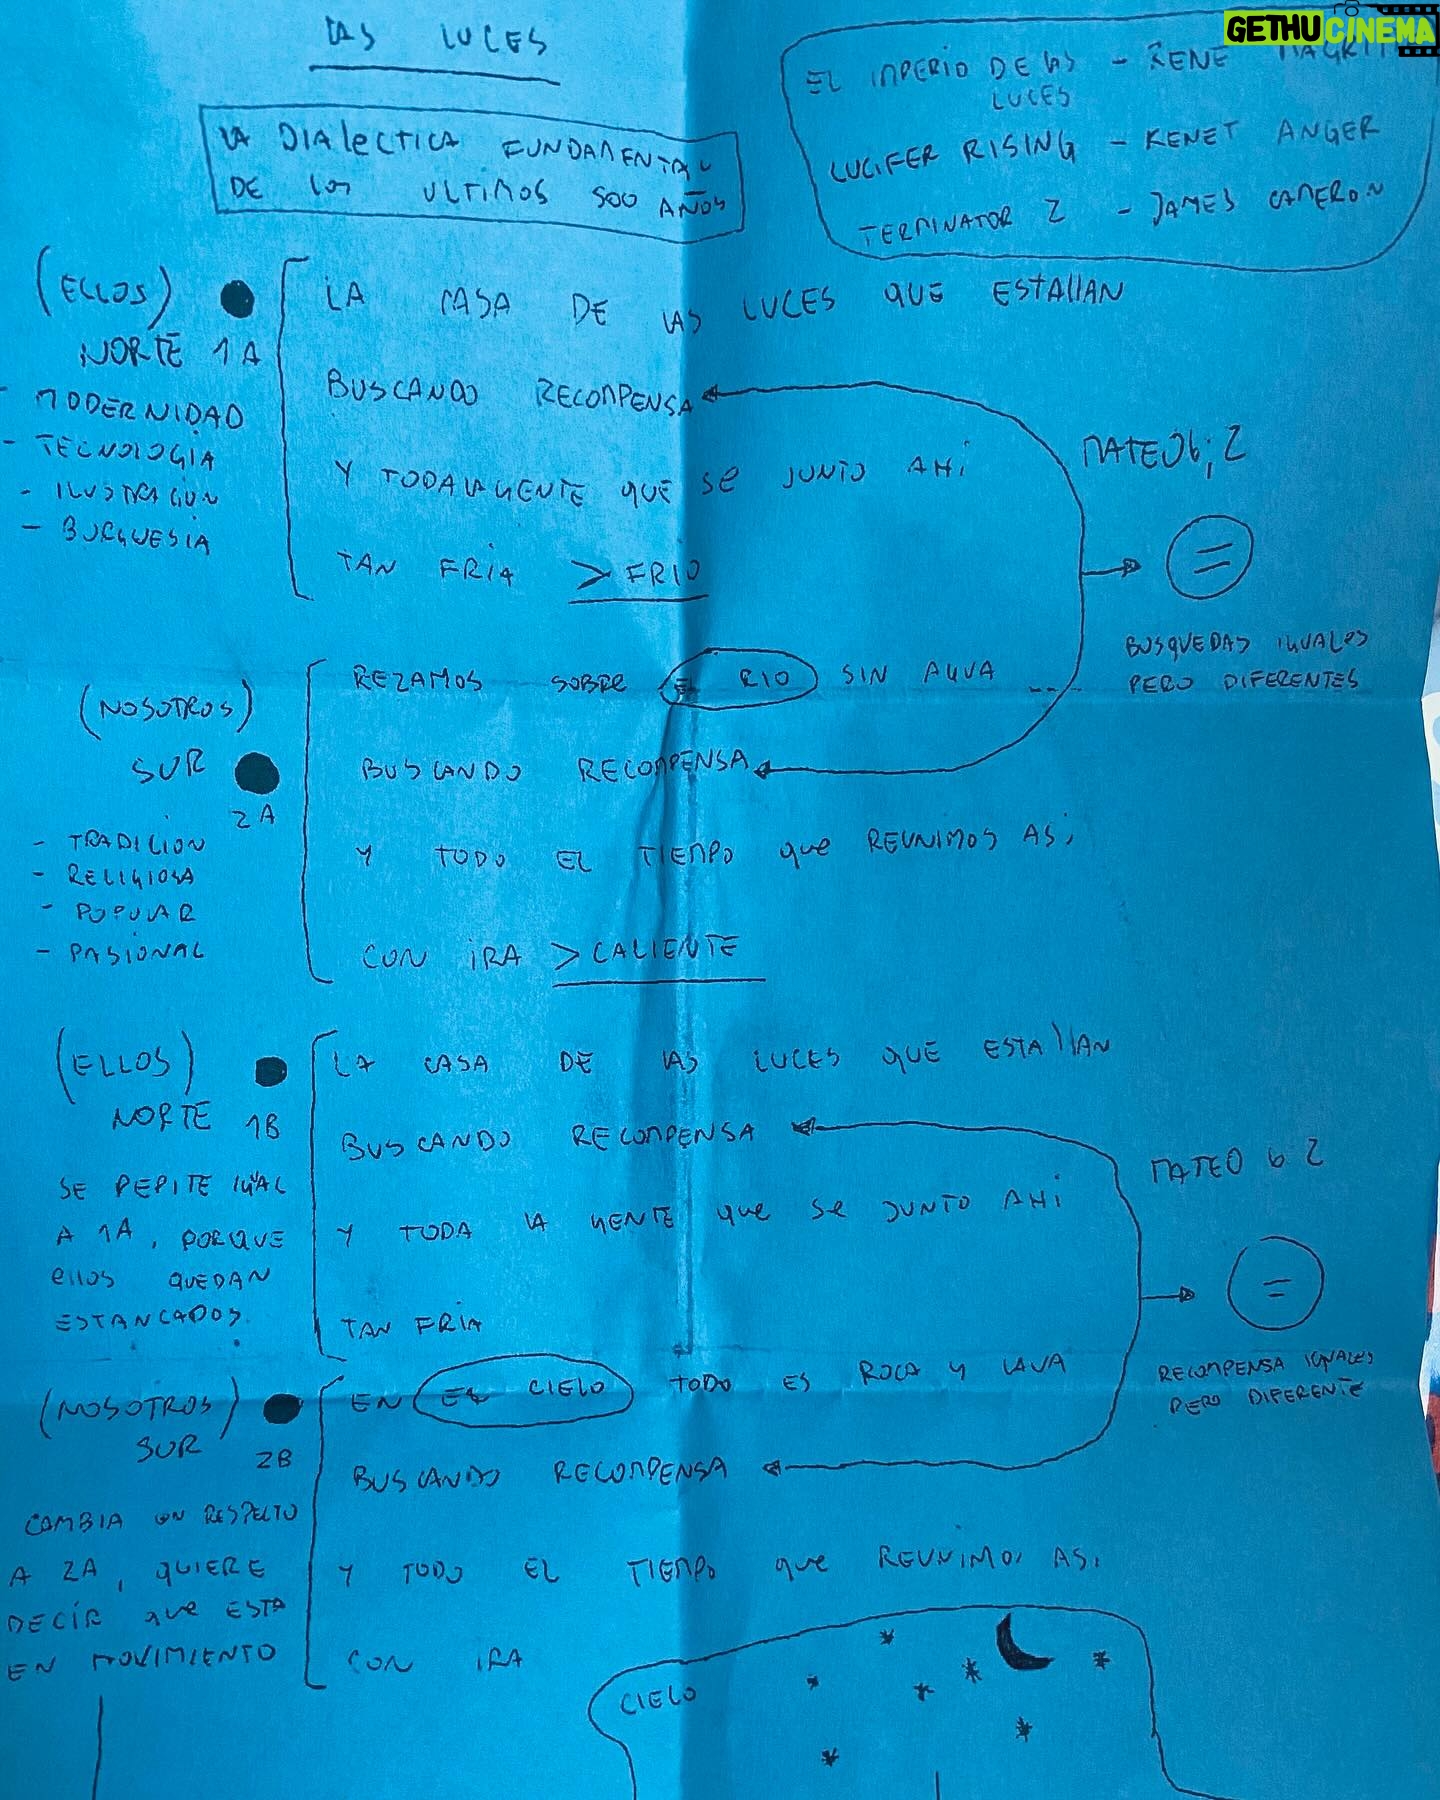 LAS LUCES
LA DIALECTICA FUNDAMENTAL
DE LOS ULTIMOS 500 AÑOS
GETHUCINEMA
EL IMPERIO DE LAS LUCES - RENE MAGRITT
LUCIFER RISING - KENET ANGER
TERMINATOR 2 - JAMES CAMERON
(ELLOS)
NORTE 1A
- MODERNIDAD
- TECNOLOGIA
- ILUSTRACION
- BURGUESIA
LA CASA DE LAS LUCES QUE ESTALLAN
BUSCANDO RECOMPENSA
Y TODA LA GENTE QUE SE JUNTO AHI
TAN FRIA > FRIO
MATEO 6; 2
=
BUSQUEDAS IGUALES
PERO DIFERENTES
(NOSOTROS)
SUR
2A
- TRADICION
- RELIGIOSA
- POPULAR
- PASIONAL
REZAMOS SOBRE EL RIO SIN AGUA
BUSCANDO RECOMPENSA
Y TODO EL TIEMPO QUE REUNIMOS ASI
CON IRA > CALIENTE
(ELLOS)
NORTE 1B
SE REPITE IGUAL
A 1A, PORQUE
ELLOS QUEDAN
ESTANCADOS.
LA CASA DE LAS LUCES QUE ESTALLAN
BUSCANDO RECOMPENSA
Y TODA LA GENTE QUE SE JUNTO AHI
TAN FRIA
MATEO 6 2
=
RECOMPENSA IGUALES
PERO DIFERENTE
(NOSOTROS)
SUR
2B
CAMBIA CON RESPECTO
A 2A, QUIERE
DECIR QUE ESTA
EN MOVIMIENTO
EN EL CIELO TODO ES ROCA Y LAVA
BUSCANDO RECOMPENSA
Y TODO EL TIEMPO QUE REUNIMOS ASI
CON IRA
CIELO